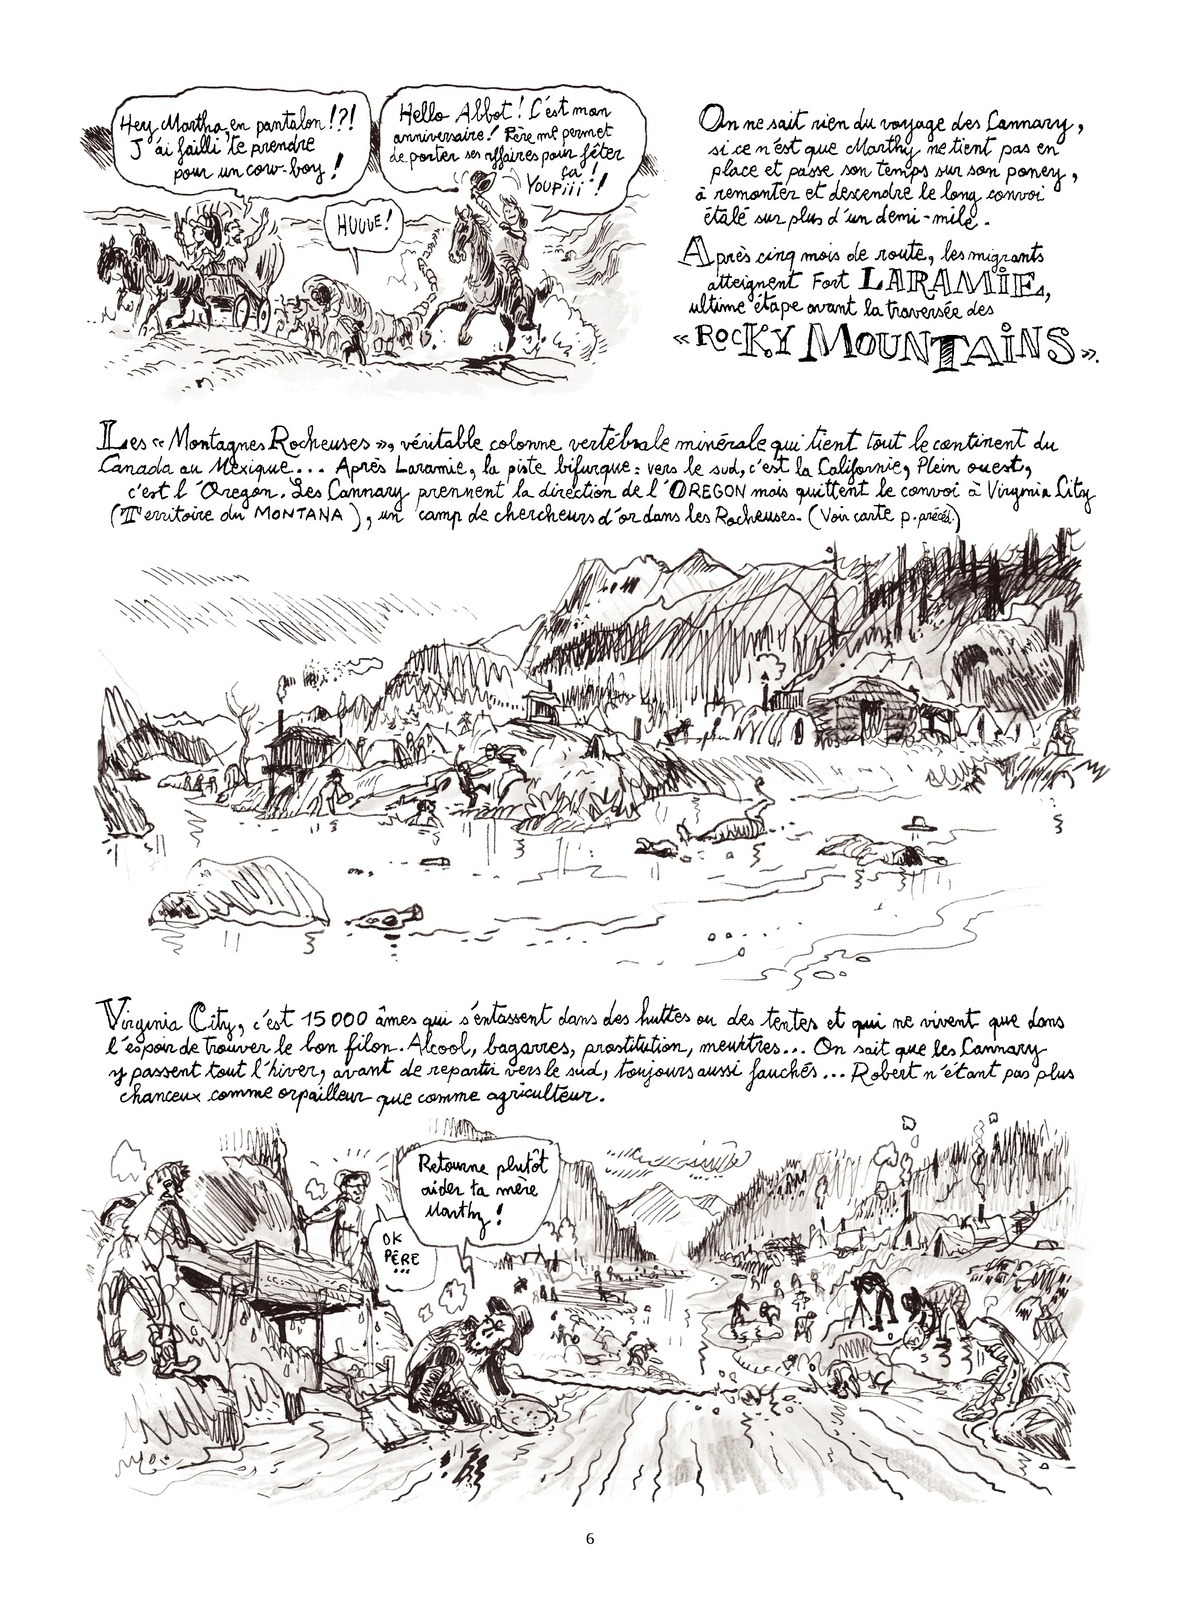 Hey Martha, en pantalon !?!
J'ai failli te prendre
pour un cow-boy !
Hello Abbot ! C'est mon
anniversaire ! Père me permet
de porter ses affaires pour fêter
ça !
YOUPiii !
HUUUE !
On ne sait rien du voyage des Cannary,
si ce n'est que Marthy ne tient pas en
place et passe son temps sur son poney,
à remonter et descendre le long convoi
étalé sur plus d'un demi-mile.
Après cinq mois de route, les migrants
atteignent Fort LARAMIE,
ultime étape avant la traversée des
« ROCKY MOUNTAINS ».
Les « Montagnes Rocheuses », véritable colonne vertébrale minérale qui tient tout le continent du
Canada au Mexique... Après Laramie, la piste bifurque : vers le sud, c'est la Californie, Plein ouest,
c'est l'Oregon. Les Cannary prennent la direction de l'OREGON mais quittent le convoi à Virginia City
(Territoire du MONTANA), un camp de chercheurs d'or dans les Rocheuses. (Voir carte p. précéd.)
Virginia City, c'est 15 000 âmes qui s'entassent dans des huttes ou des tentes et qui ne vivent que dans
l'espoir de trouver le bon filon. Alcool, bagarres, prostitution, meurtres... On sait que les Cannary
y passent tout l'hiver, avant de repartir vers le sud, toujours aussi fauchés... Robert n'étant pas plus
chanceux comme orpailleur que comme agriculteur.
Retourne plutôt
aider ta mère
Marthy !
OK
PÈRE
...
6